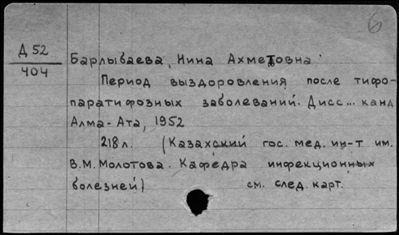 6
Д 52
404
Барлыбаева, Нина Ахметовна
Период выздоровления после тифо-
паратифозных заболеваний. Дисс... канд
Алма-Ата, 1952
218 л. (Казахский гос. мед. ин-т им.
В.М. Молотова. Кафедра инфекционных
болезней)
см. след. карт.